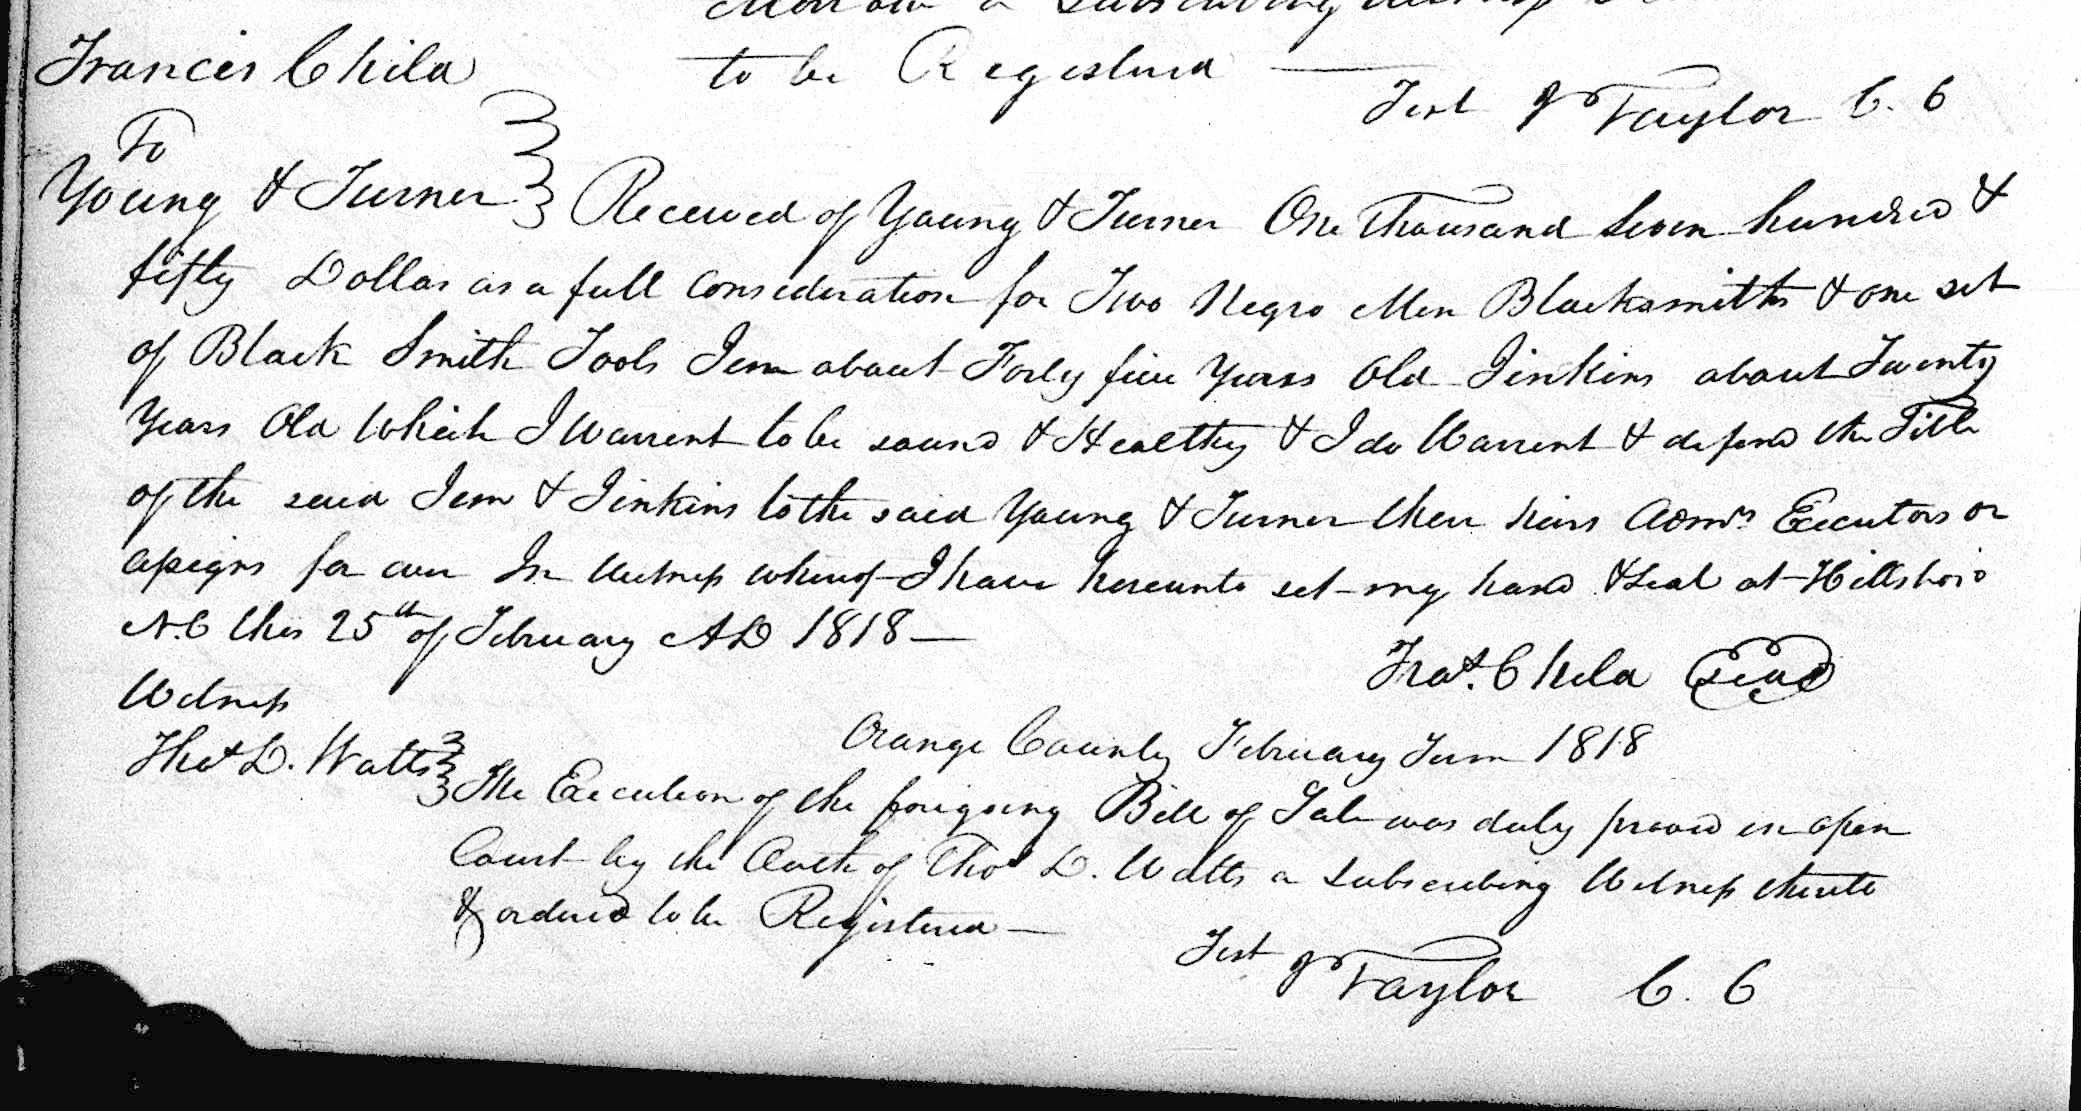 a subscribing
Francis Child
to be Registered —
Test J Taylor C. C
To
Young & Turner
Received of Young & Turner One Thousand Seven hundred &
fifty Dollars as a full consideration for Two Negro Men Blacksmiths & one set
of Black Smith Tools Jem about Forty five Years Old Jinkins about Twenty
Years Old Which I Warrent to be sound & Healthy & I do Warrent & defend the Title
of the said Jem & Jinkins to the said Young & Turner their heirs Admrs Executors or
assigns for ever In Witness whereof I have hereunto set my hand & Seal at Hillsboro
N.C this 25th of February AD 1818 —
Fras. Child Seal
Witness
Thos D. Watts
Orange County February Term 1818
The Execution of the foregoing Bill of Sale was duly proved in open
Court by the Oath of Thos D. Watts a subscribing Witness thereto
& ordered to be Registered —
Test J Taylor C. C